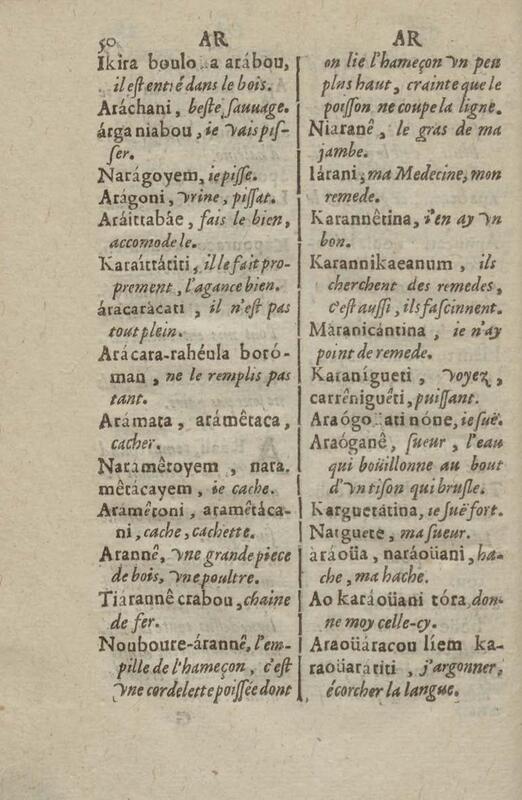 50 AR AR
Ikira boulo a arábou,
il est entié dans le bois.
Aráchani, beste sauuage.
árganiabou, ie vais pis-
ser.
Narágoyem, ie pisse.
Arágoni, vrine, pissat.
Aráittabáe, fais le bien,
accomode le.
Karaíttátiti, il le fait pro-
prement, l'agance bien.
áracarácati, il n'est pas
tout plein.
Arácara-rahéula botó-
man, ne le remplis pas
tant.
Arámata, arámêtaca,
cacher.
Naramêtoyem, nara.
mêtácayem, ie cache.
Arámêtoni, aramêtáca-
ni, cache, cachette.
Arannê, vne grande piece
de bois, vne poultre.
Tiárannê crabou, chaine
de fer.
Nouboure-árannê, l'em-
pille de l'hameçon, c'est
vne cordelette poissée dont
on lie l'hameçon vn peu
plus haut, crainte que le
poisson ne coupe la ligne.
Niaranê, le gras de ma
jambe.
Iárani, ma Medecine, mon
remede.
Karannêtina, i'en ay vn
bon.
Karannikaeanum, ils
cherchent des remedes,
c'est aussi, ils fascinnent.
Máranicántina, ie n'ay
point de remede.
Karanígueti, voyez,
carrêniguêti, puissant.
Araógo ati nóne, ie suë.
Araóganê, sueur, l'eau
qui boüillonne au bout
d'vn tison qui brusle.
Karguetátina, ie suë fort.
Narguete, ma sueur.
àráoüa, naráoüani, ha-
che, ma hache.
Ao karáoüani tóra, don-
ne moy celle-cy.
Araoüáracou líem ka-
raoüarátiti, j'argonner,
écorcher la langue.